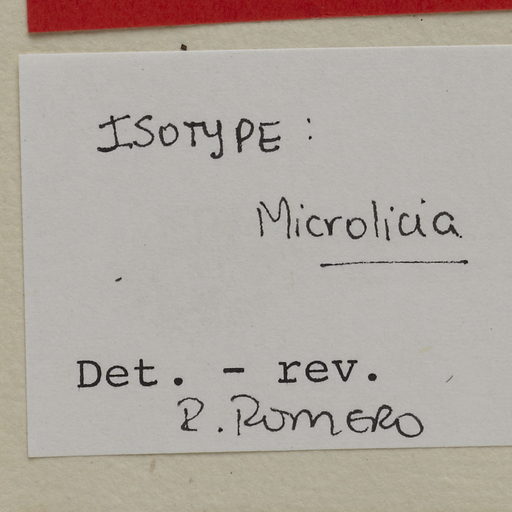 ISOTYPE:
Microlicia
Det. - rev.
R. ROMERO